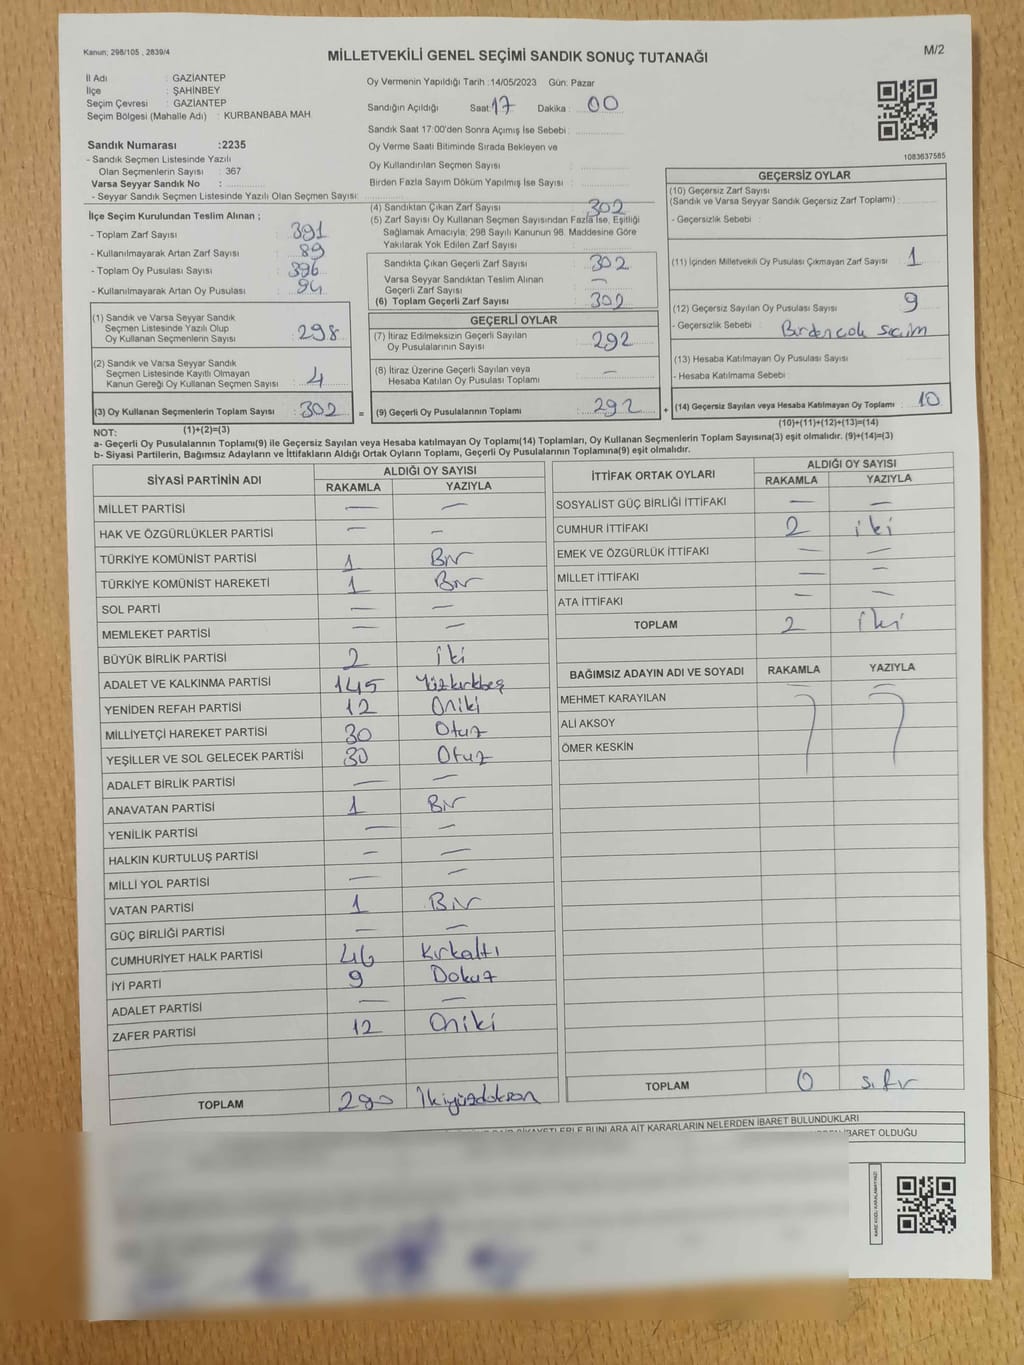 Kanun; 298/105 , 2839/4
MİLLETVEKİLİ GENEL SEÇİMİ SANDIK SONUÇ TUTANAĞI
M/2
İl Adı : GAZİANTEP
İlçe : ŞAHİNBEY
Seçim Çevresi : GAZİANTEP
Seçim Bölgesi (Mahalle Adı) : KURBANBABA MAH
Sandık Numarası :2235
- Sandık Seçmen Listesinde Yazılı
Olan Seçmenlerin Sayısı : 367
Varsa Seyyar Sandık No :
- Seyyar Sandık Seçmen Listesinde Yazılı Olan Seçmen Sayısı:
Oy Vermenin Yapıldığı Tarih :14/05/2023 Gün: Pazar
Sandığın Açıldığı Saat: 17 Dakika : 00
Sandık Saat 17:00'den Sonra Açımış İse Sebebi :
Oy Verme Saati Bitiminde Sırada Bekleyen ve
Oy Kullandırılan Seçmen Sayısı :
Birden Fazla Sayım Döküm Yapılmış İse Sayısı :
1083637585
İlçe Seçim Kurulundan Teslim Alınan ;
- Toplam Zarf Sayısı : 391
- Kullanılmayarak Artan Zarf Sayısı : 89
- Toplam Oy Pusulası Sayısı : 396
- Kullanılmayarak Artan Oy Pusulası : 94
(1) Sandık ve Varsa Seyyar Sandık
Seçmen Listesinde Yazılı Olup
Oy Kullanan Seçmenlerin Sayısı : 298
(2) Sandık ve Varsa Seyyar Sandık
Seçmen Listesinde Kayıtlı Olmayan
Kanun Gereği Oy Kullanan Seçmen Sayısı : 4
(3) Oy Kullanan Seçmenlerin Toplam Sayısı : 302
(1)+(2)=(3)
(4) Sandıktan Çıkan Zarf Sayısı : 302
(5) Zarf Sayısı Oy Kullanan Seçmen Sayısından Fazla İse, Eşitliği
Sağlamak Amacıyla; 298 Sayılı Kanunun 98. Maddesine Göre
Yakılarak Yok Edilen Zarf Sayısı :
Sandıkta Çıkan Geçerli Zarf Sayısı : 302
Varsa Seyyar Sandıktan Teslim Alınan
Geçerli Zarf Sayısı : —
(6) Toplam Geçerli Zarf Sayısı : 302
GEÇERLİ OYLAR
(7) İtiraz Edilmeksizin Geçerli Sayılan
Oy Pusulalarının Sayısı : 292
(8) İtiraz Üzerine Geçerli Sayılan veya
Hesaba Katılan Oy Pusulası Toplamı : —
= (9) Geçerli Oy Pusulalarının Toplamı : 292 +
GEÇERSİZ OYLAR
(10) Geçersiz Zarf Sayısı
(Sandık ve Varsa Seyyar Sandık Geçersiz Zarf Toplamı) :
- Geçersizlik Sebebi :
(11) İçinden Milletvekili Oy Pusulası Çıkmayan Zarf Sayısı : 1
(12) Geçersiz Sayılan Oy Pusulası Sayısı : 9
- Geçersizlik Sebebi : Birden çok seçim
(13) Hesaba Katılmayan Oy Pusulası Sayısı :
- Hesaba Katılmama Sebebi :
(14) Geçersiz Sayılan veya Hesaba Katılmayan Oy Toplamı : 10
(10)+(11)+(12)+(13)=(14)
NOT:
a- Geçerli Oy Pusulalarının Toplamı(9) ile Geçersiz Sayılan veya Hesaba katılmayan Oy Toplamı(14) Toplamları, Oy Kullanan Seçmenlerin Toplam Sayısına(3) eşit olmalıdır. (9)+(14)=(3)
b- Siyasi Partilerin, Bağımsız Adayların ve İttifakların Aldığı Ortak Oyların Toplamı, Geçerli Oy Pusulalarının Toplamına(9) eşit olmalıdır.
SİYASİ PARTİNİN ADI ALDIĞI OY SAYISI
RAKAMLA YAZIYLA
MİLLET PARTİSİ — —
HAK VE ÖZGÜRLÜKLER PARTİSİ — —
TÜRKİYE KOMÜNİST PARTİSİ 1 Bir
TÜRKİYE KOMÜNİST HAREKETİ 1 Bir
SOL PARTİ — —
MEMLEKET PARTİSİ — —
BÜYÜK BİRLİK PARTİSİ 2 iki
ADALET VE KALKINMA PARTİSİ 145 Yüzkırkbeş
YENİDEN REFAH PARTİSİ 12 Oniki
MİLLİYETÇİ HAREKET PARTİSİ 30 Otuz
YEŞİLLER VE SOL GELECEK PARTİSİ 30 Otuz
ADALET BİRLİK PARTİSİ — —
ANAVATAN PARTİSİ 1 Bir
YENİLİK PARTİSİ — —
HALKIN KURTULUŞ PARTİSİ — —
MİLLİ YOL PARTİSİ — —
VATAN PARTİSİ 1 Bir
GÜÇ BİRLİĞİ PARTİSİ — —
CUMHURİYET HALK PARTİSİ 46 Kırkaltı
İYİ PARTİ 9 Dokuz
ADALET PARTİSİ — —
ZAFER PARTİSİ 12 Oniki
TOPLAM 290 İkiyüzdoksan
İTTİFAK ORTAK OYLARI ALDIĞI OY SAYISI
RAKAMLA YAZIYLA
SOSYALİST GÜÇ BİRLİĞİ İTTİFAKI — —
CUMHUR İTTİFAKI 2 iki
EMEK VE ÖZGÜRLÜK İTTİFAKI — —
MİLLET İTTİFAKI — —
ATA İTTİFAKI — —
TOPLAM 2 İki
BAĞIMSIZ ADAYIN ADI VE SOYADI RAKAMLA YAZIYLA
MEHMET KARAYILAN
ALİ AKSOY
ÖMER KESKİN
TOPLAM 0 sıfır
BUNLARA AİT KARARLARIN NELERDEN İBARET BULUNDUKLARI
İBARET OLDUĞU